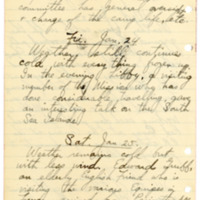 committee has general oversight
& charge of the camp life, etc.
Fri. Jan. 24
Weather still continues
cold with everything frozen up.
In the evening Libby, a visiting
member of the Mission who has
done considerable traveling, gave
an interesting talk on the South
Sea Islands.
Sat. Jan 25.
Weather remains cold but
with less wind. Edward Grubb
an elderly English Friend who is
visiting the various Equipes in